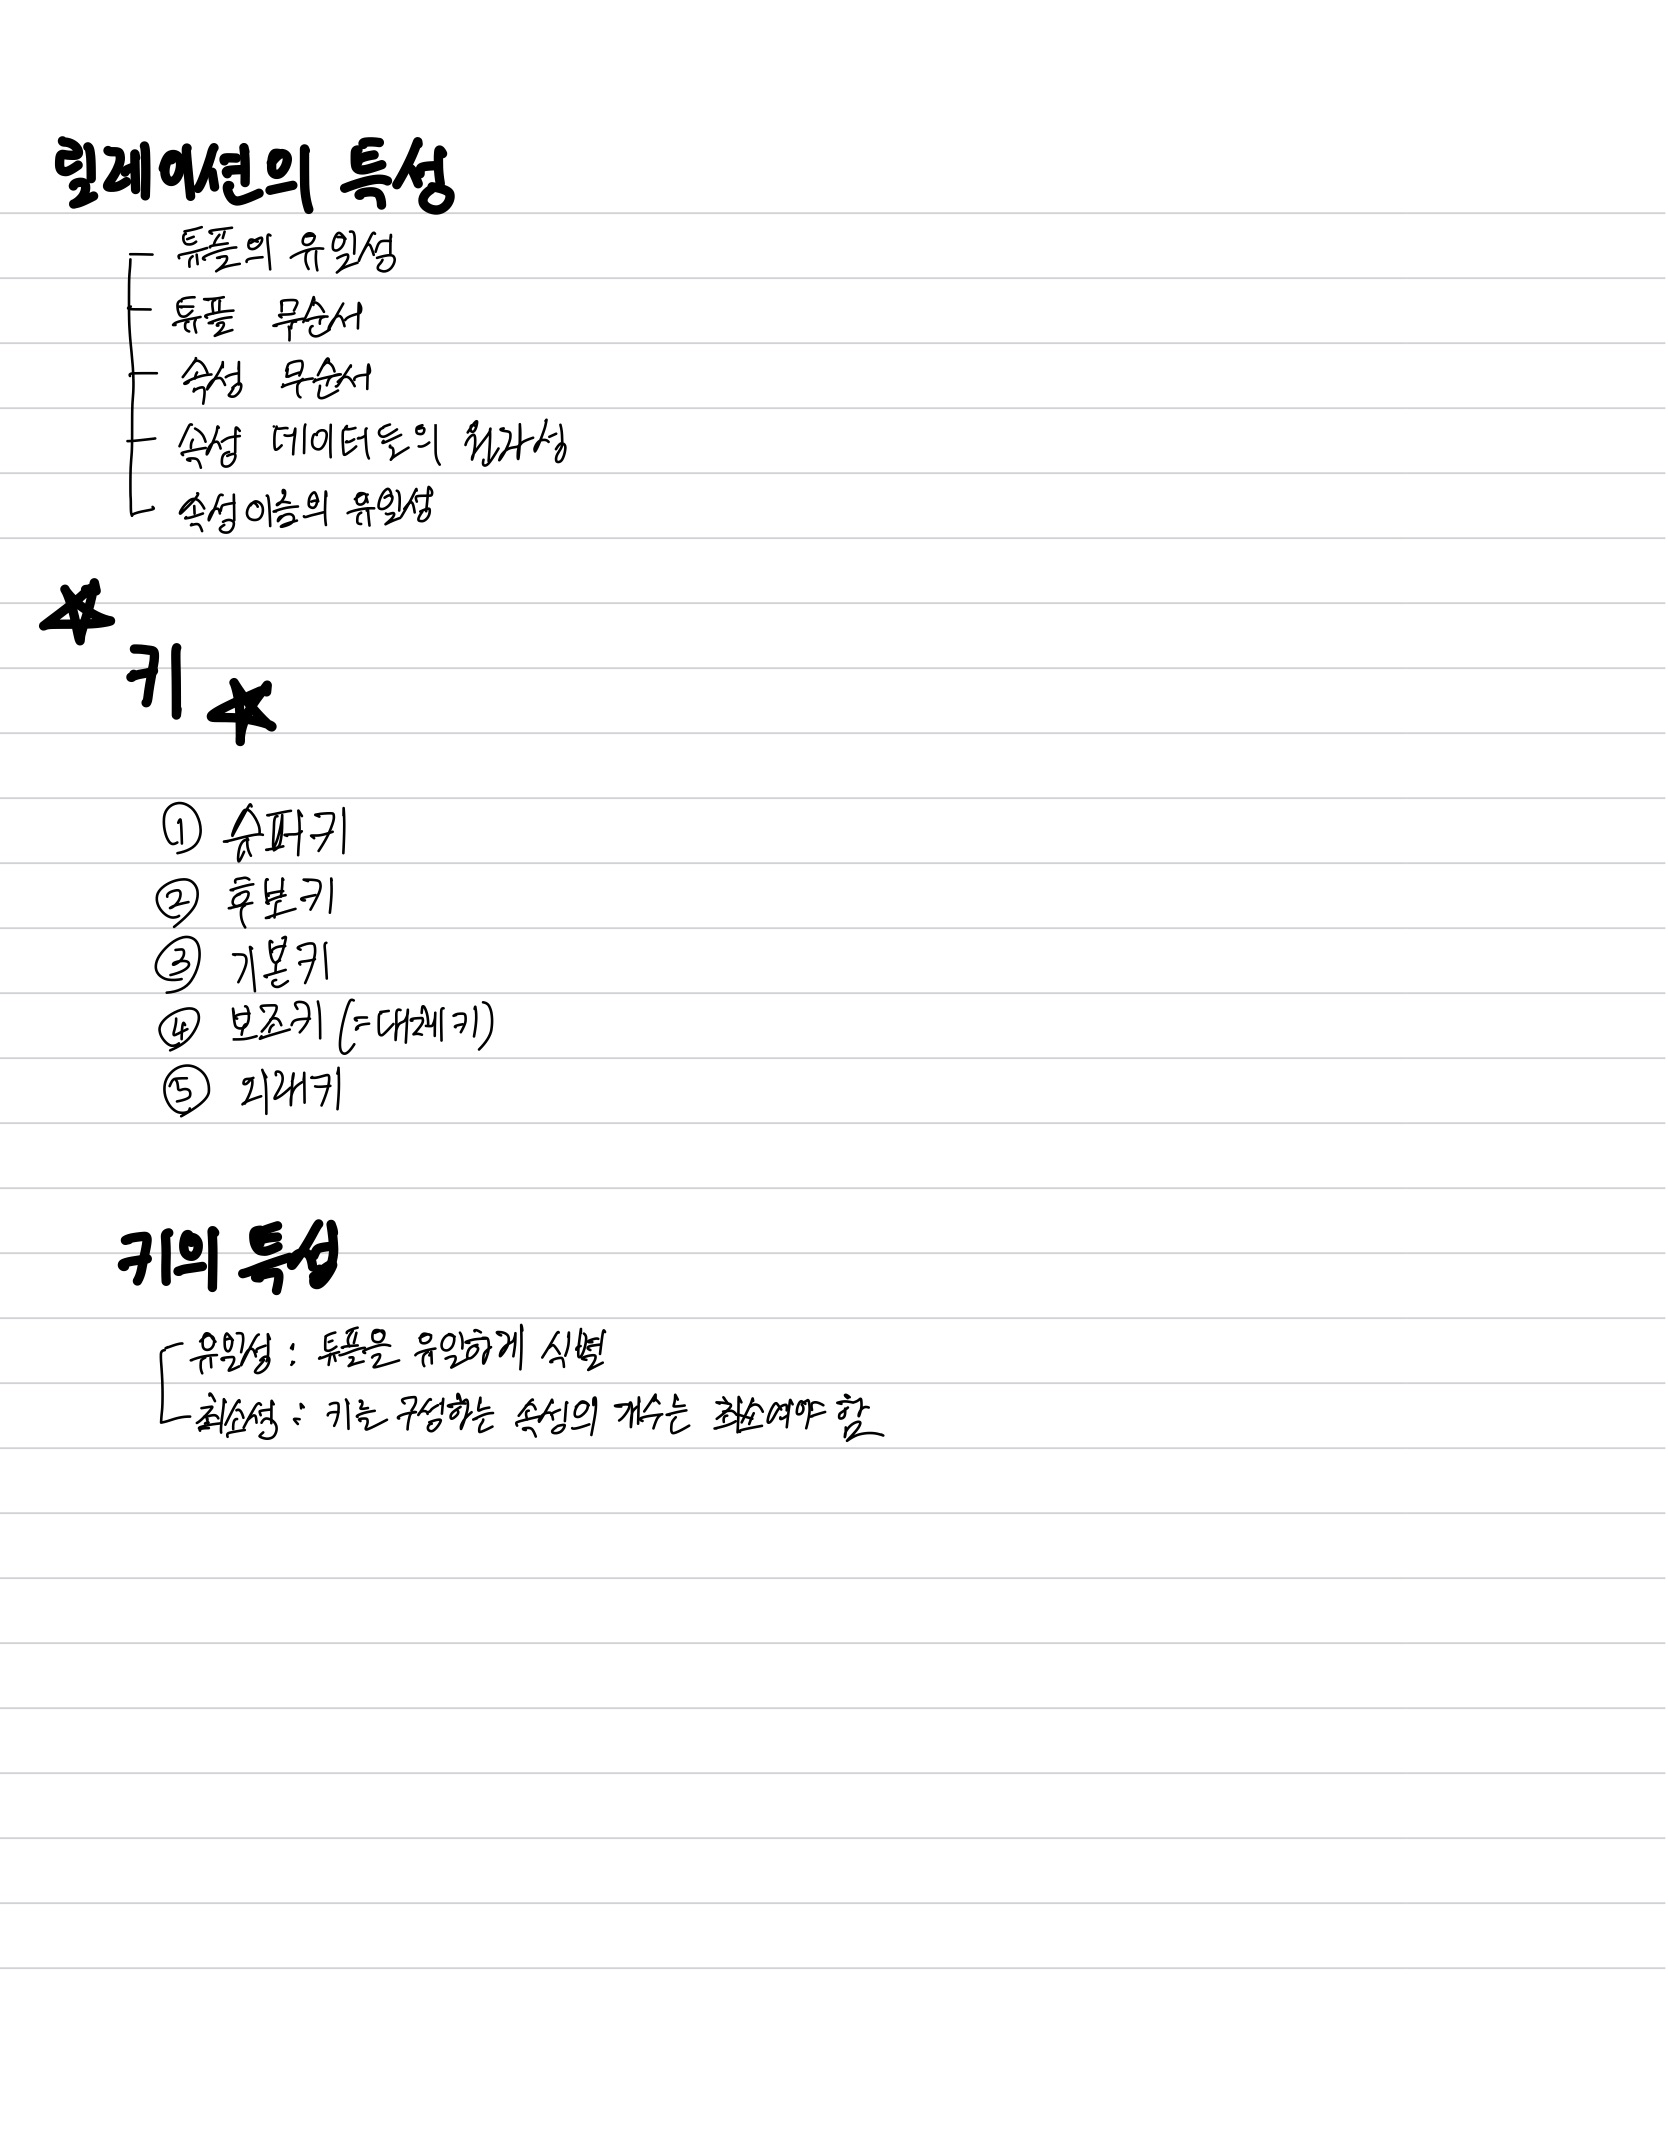 릴레이션의 특성
튜플의 유일성
튜플 무순서
속성 무순서
속성 데이터들의 원자성
속성이름의 유일성
키
① 슈퍼키
② 후보키
③ 기본키
④ 보조키 (=대체키)
⑤ 외래키
키의 특성
유일성 : 튜플을 유일하게 식별
최소성 : 키를 구성하는 속성의 개수는 최소여야 함